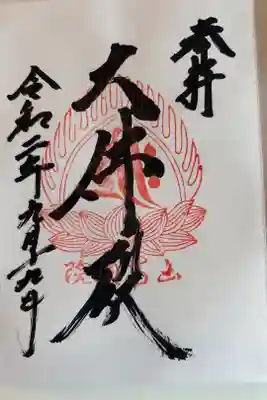 奉拝
大佛殿
令和二年九月九日